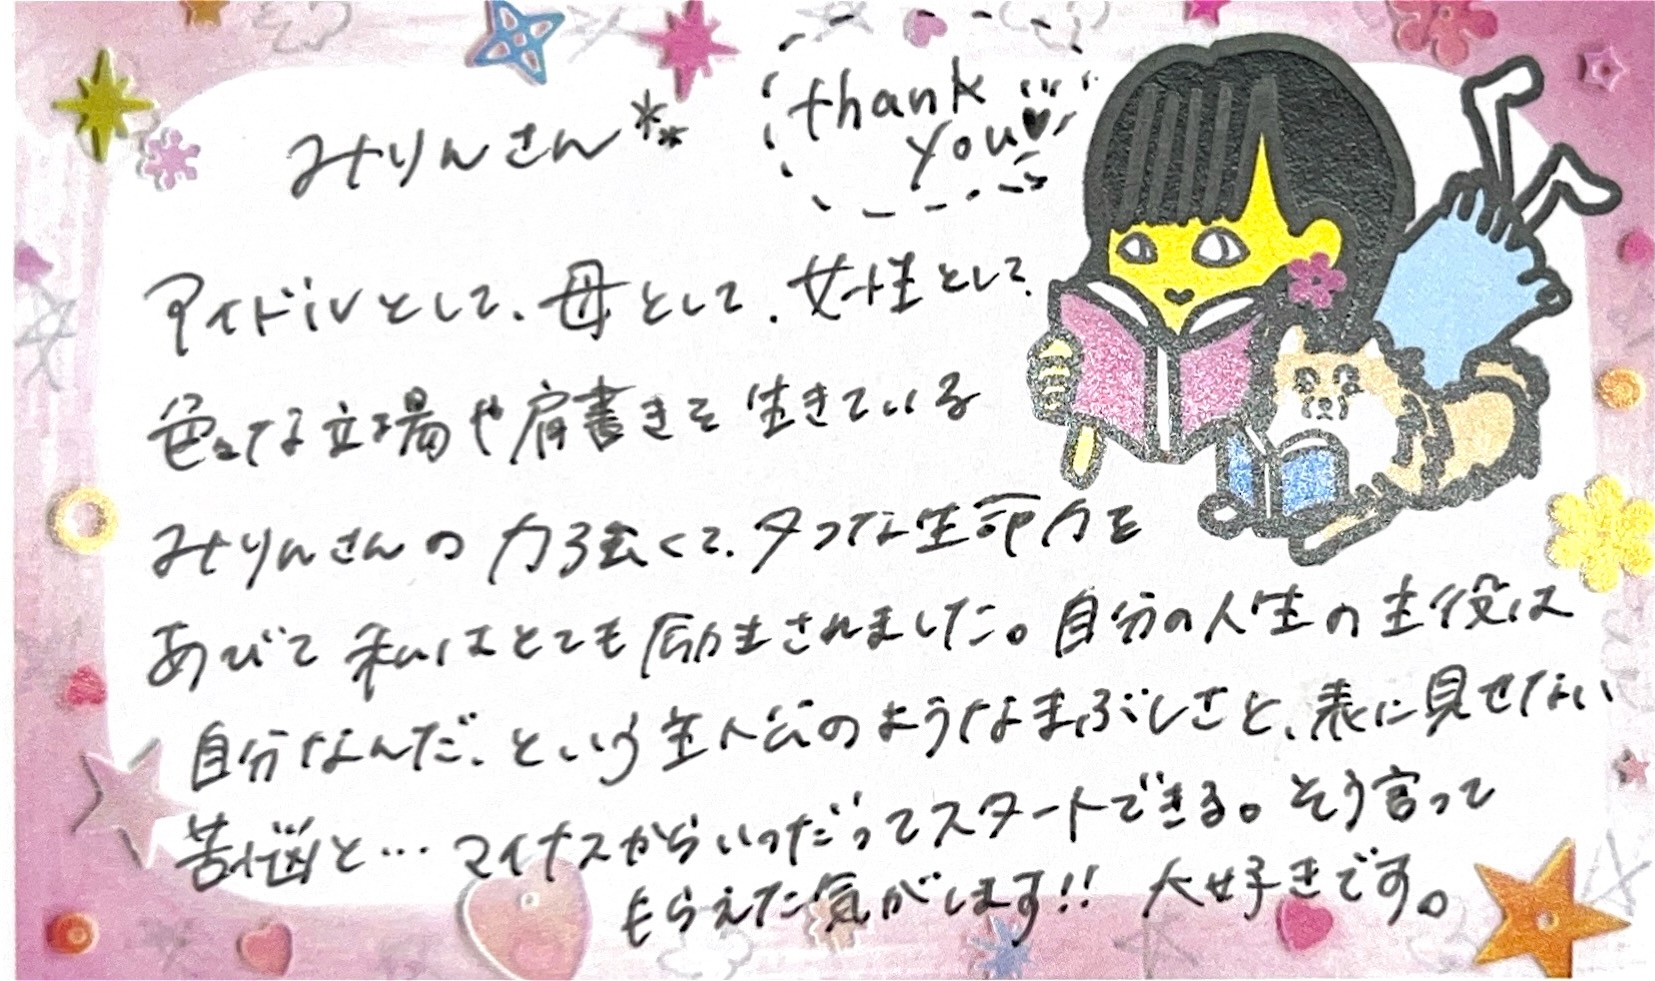 みりんさん**
thank
you♥
アイドルとして、母として、女性として、
色々な立場や肩書きを生きている
みりんさんの力強くて、タフな生命力を
あびて私はとても励まされました。自分の人生の主役は
自分なんだ、という主人公のようなまぶしさと、表に見せない
苦悩と…マイナスからいつだってスタートできる。そう言って
もらえた気がします!! 大好きです。